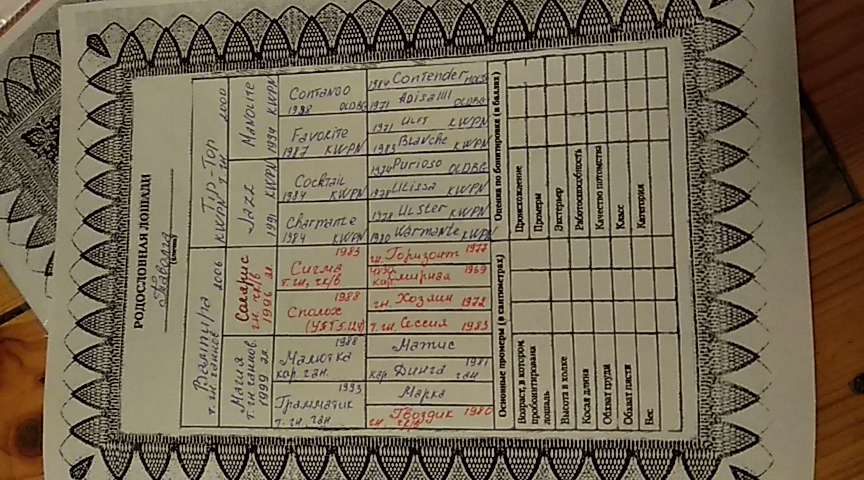 РОДОСЛОВНАЯ ЛОШАДИ
(кличка)
Вампира 2006
т. гн. ганнов.
Tip-Top 2000
KWPN т. гн
Магия
т. гн ганнов.
1999
Сакарис
гн. чк/в
1996
Jazz
1991 KWPN
Manolite
1994 KWPN
Грамматик 1993
т. гн. ган
Малютка 1988
кар. ган.
Сполох 1988
Сигма 1985
т. гн, чк/в
Charmante
1984 KWPN
Cocktail
1984 KWPN
Favorite
1987 KWPN
Contango
OLDBG
Гвоздик 1980
гн. чк/в
Марка
кар. Динга 1981
ган
Матис
т. гн. Сессия 1983
гн. Хозяин 1972
кар. Смирная 1969
гн. Горизонт
Warmante KWPN
1978 Ulster KWPN
Ulissa KWPN
1974 Purioso OLDBG
Blanche KWPN
1971 Ulft KWPN
1971 OLDBG
1984 Contender
Основные промеры (в сантиметрах)
Возраст, в котором
пробонитирована
лошадь
Высота в холке
Косая длина
Обхват груди
Обхват пясти
Вес
Оценка по бонитировке (в баллах)
Происхождение
Промеры
Экстерьер
Работоспособность
Качество потомства
Класс
Категория